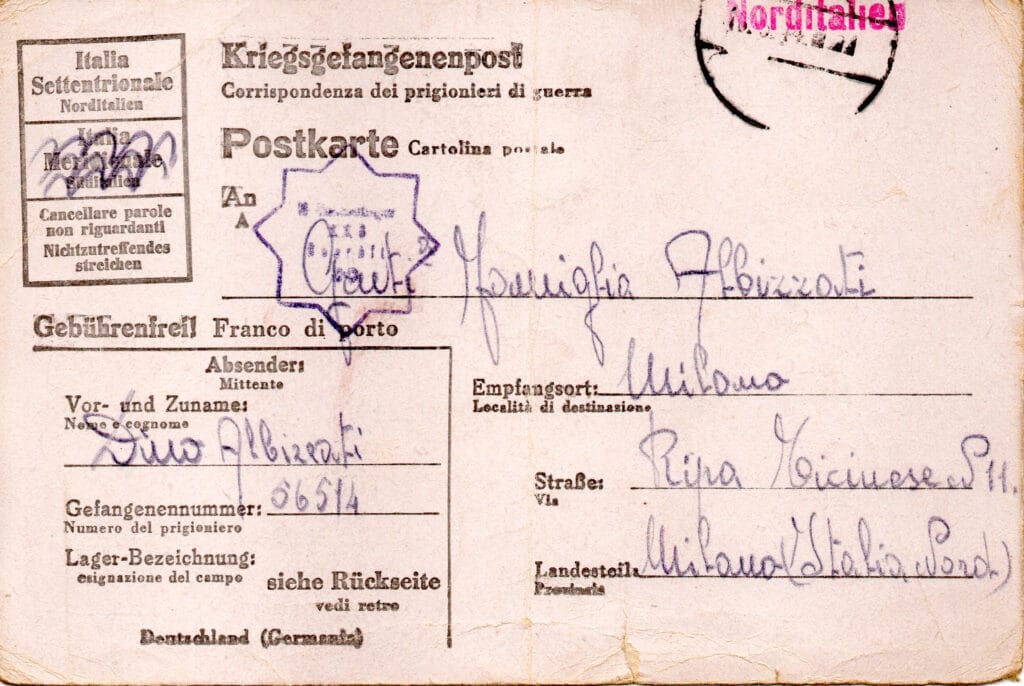 Norditalien
Italia
Settentrionale
Norditalien
Italia
Meridionale
Süditalien
Cancellare parole
non riguardanti
Nichtzutreffendes
streichen
Kriegsgefangenenpost
Corrispondenza dei prigionieri di guerra
Postkarte Cartolina postale
An
A
Gent. Famiglia Albizzati
Gebührenfrei! Franco di porto
Absender:
Mittente
Vor- und Zuname:
Nome e cognome
Dino Albizzati
Gefangenennummer: 56514
Numero del prigioniero
Lager-Bezeichnung:
esignazione del campo
siehe Rückseite
vedi retro
Deutschland (Germania)
Empfangsort: Milano
Località di destinazione
Straße: Ripa Ticinese N 11.
Via
Landesteil: Milano (Italia Nord)
Provincia